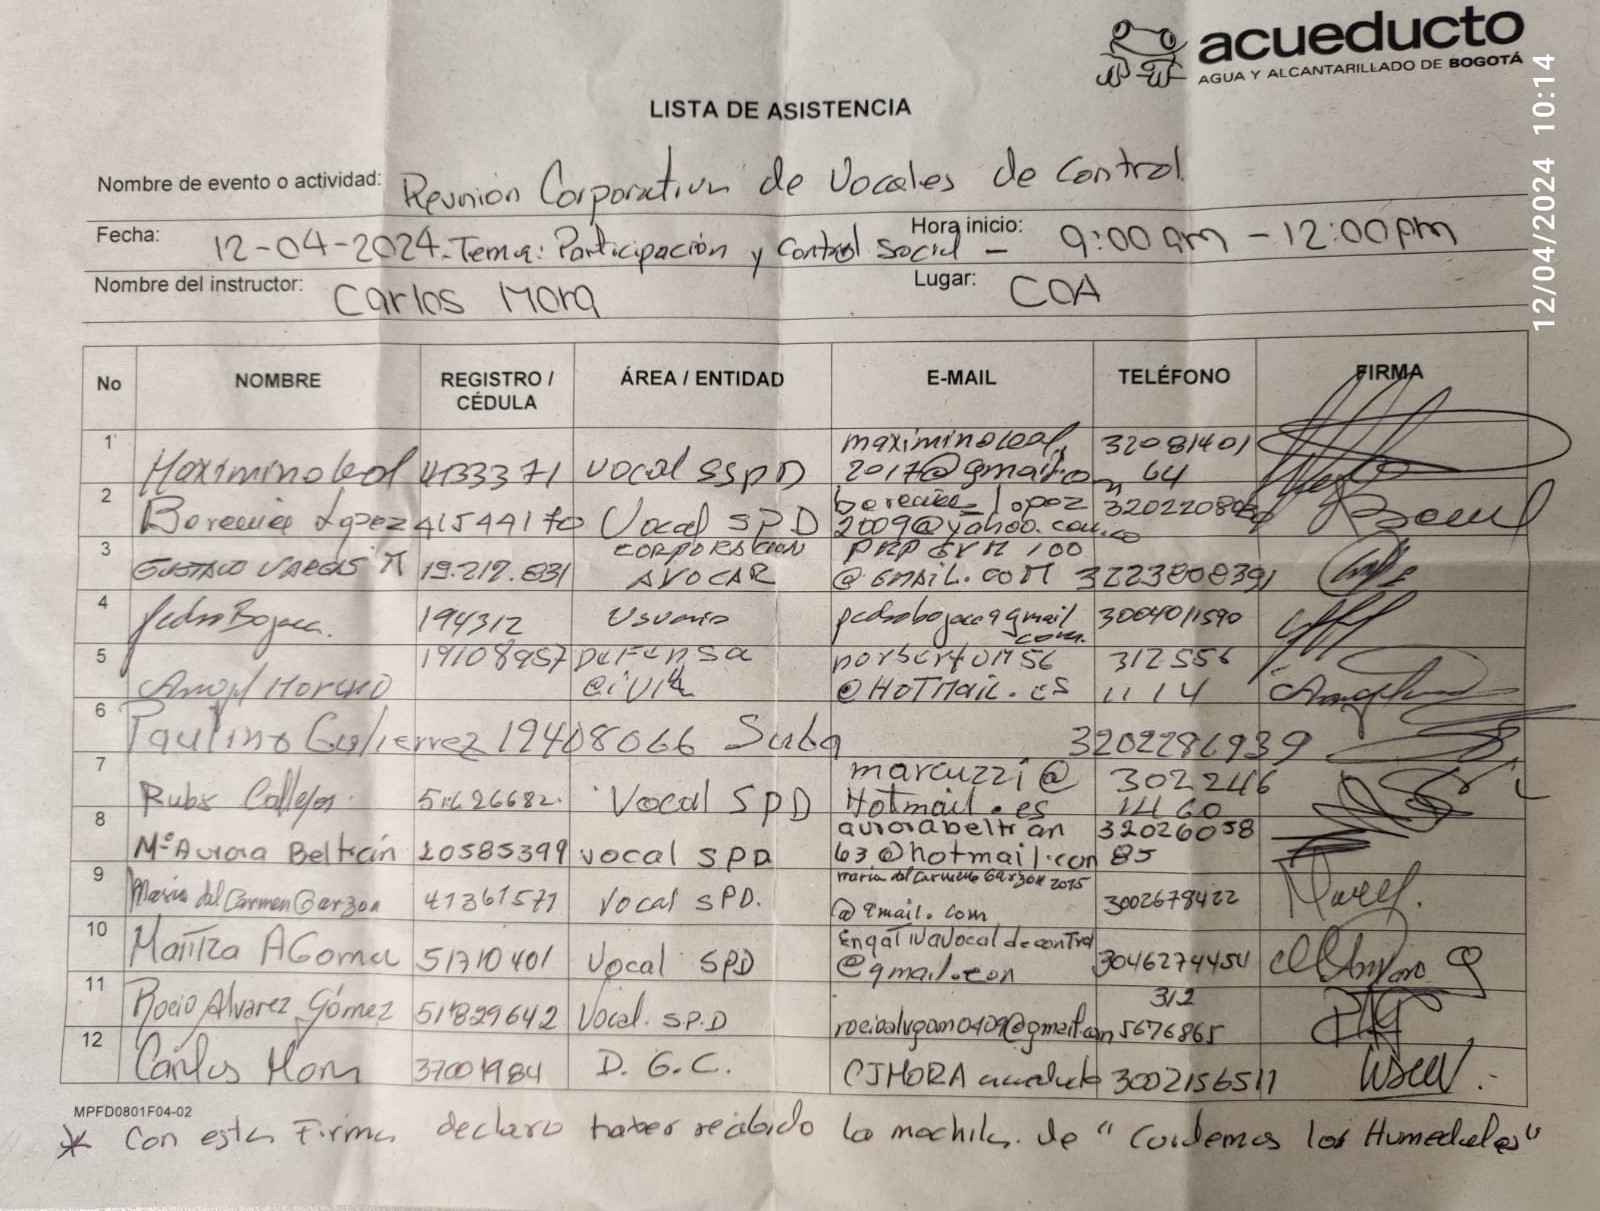 acueducto
AGUA Y ALCANTARILLADO DE BOGOTÁ
12/04/2024 10:14
LISTA DE ASISTENCIA
Nombre de evento o actividad: Reunión Corporativa de Vocales de Control.
Fecha: 12-04-2024. Tema: Participación y Control Social - Hora inicio: 9:00 am - 12:00 pm
Nombre del instructor: Carlos Mora Lugar: COA
No NOMBRE REGISTRO / CÉDULA ÁREA / ENTIDAD E-MAIL TELÉFONO FIRMA
1 Maximino leal 4133371 vocal SSPD maximinoleal, 2017@gmail.com 32081401 64
2 Lopez Vocal SPD lopez 2009@yahoo.com.co
3 GUSTAVO VARGAS M 19.217.831 CORPORACION AVOCAR 100 @GMAIL.COM 3223808391
4 Pedro Bojaca. 194312 Usuario 3004011590
5 Angel Moreno 19108957 Defensa Civil @HOTMAIL.es 312556 1114
6 Paulino Gutierrez 19408066 Suba 3202286939
7 Ruby Callejas. 51626682. Vocal SPD marcuzzi@ Hotmail.es 302246 1460
8 Mª Aurora Beltrán 20585399 vocal SPD aurorabeltran 63@hotmail.com 32026058 85
9 Maria del Carmen Garzon 41361571 Vocal SPD. maria del carmene garzon 2015 @gmail.com 3002678422
10 51710401 Vocal SPD Engativavocaldecontrol @gmail.con 3046274454
11 Rocio Alvarez Gómez 51829642 Vocal. SP.D rocioalvgom0409@gmail.com 312 5676865
12 Carlos Mora 37001984 D. G. C. CJMORA acueducto 3002156511
MPFD0801F04-02
* Con esta Firma declaro haber recibido la mochila de "Cuidemos los Humedales"